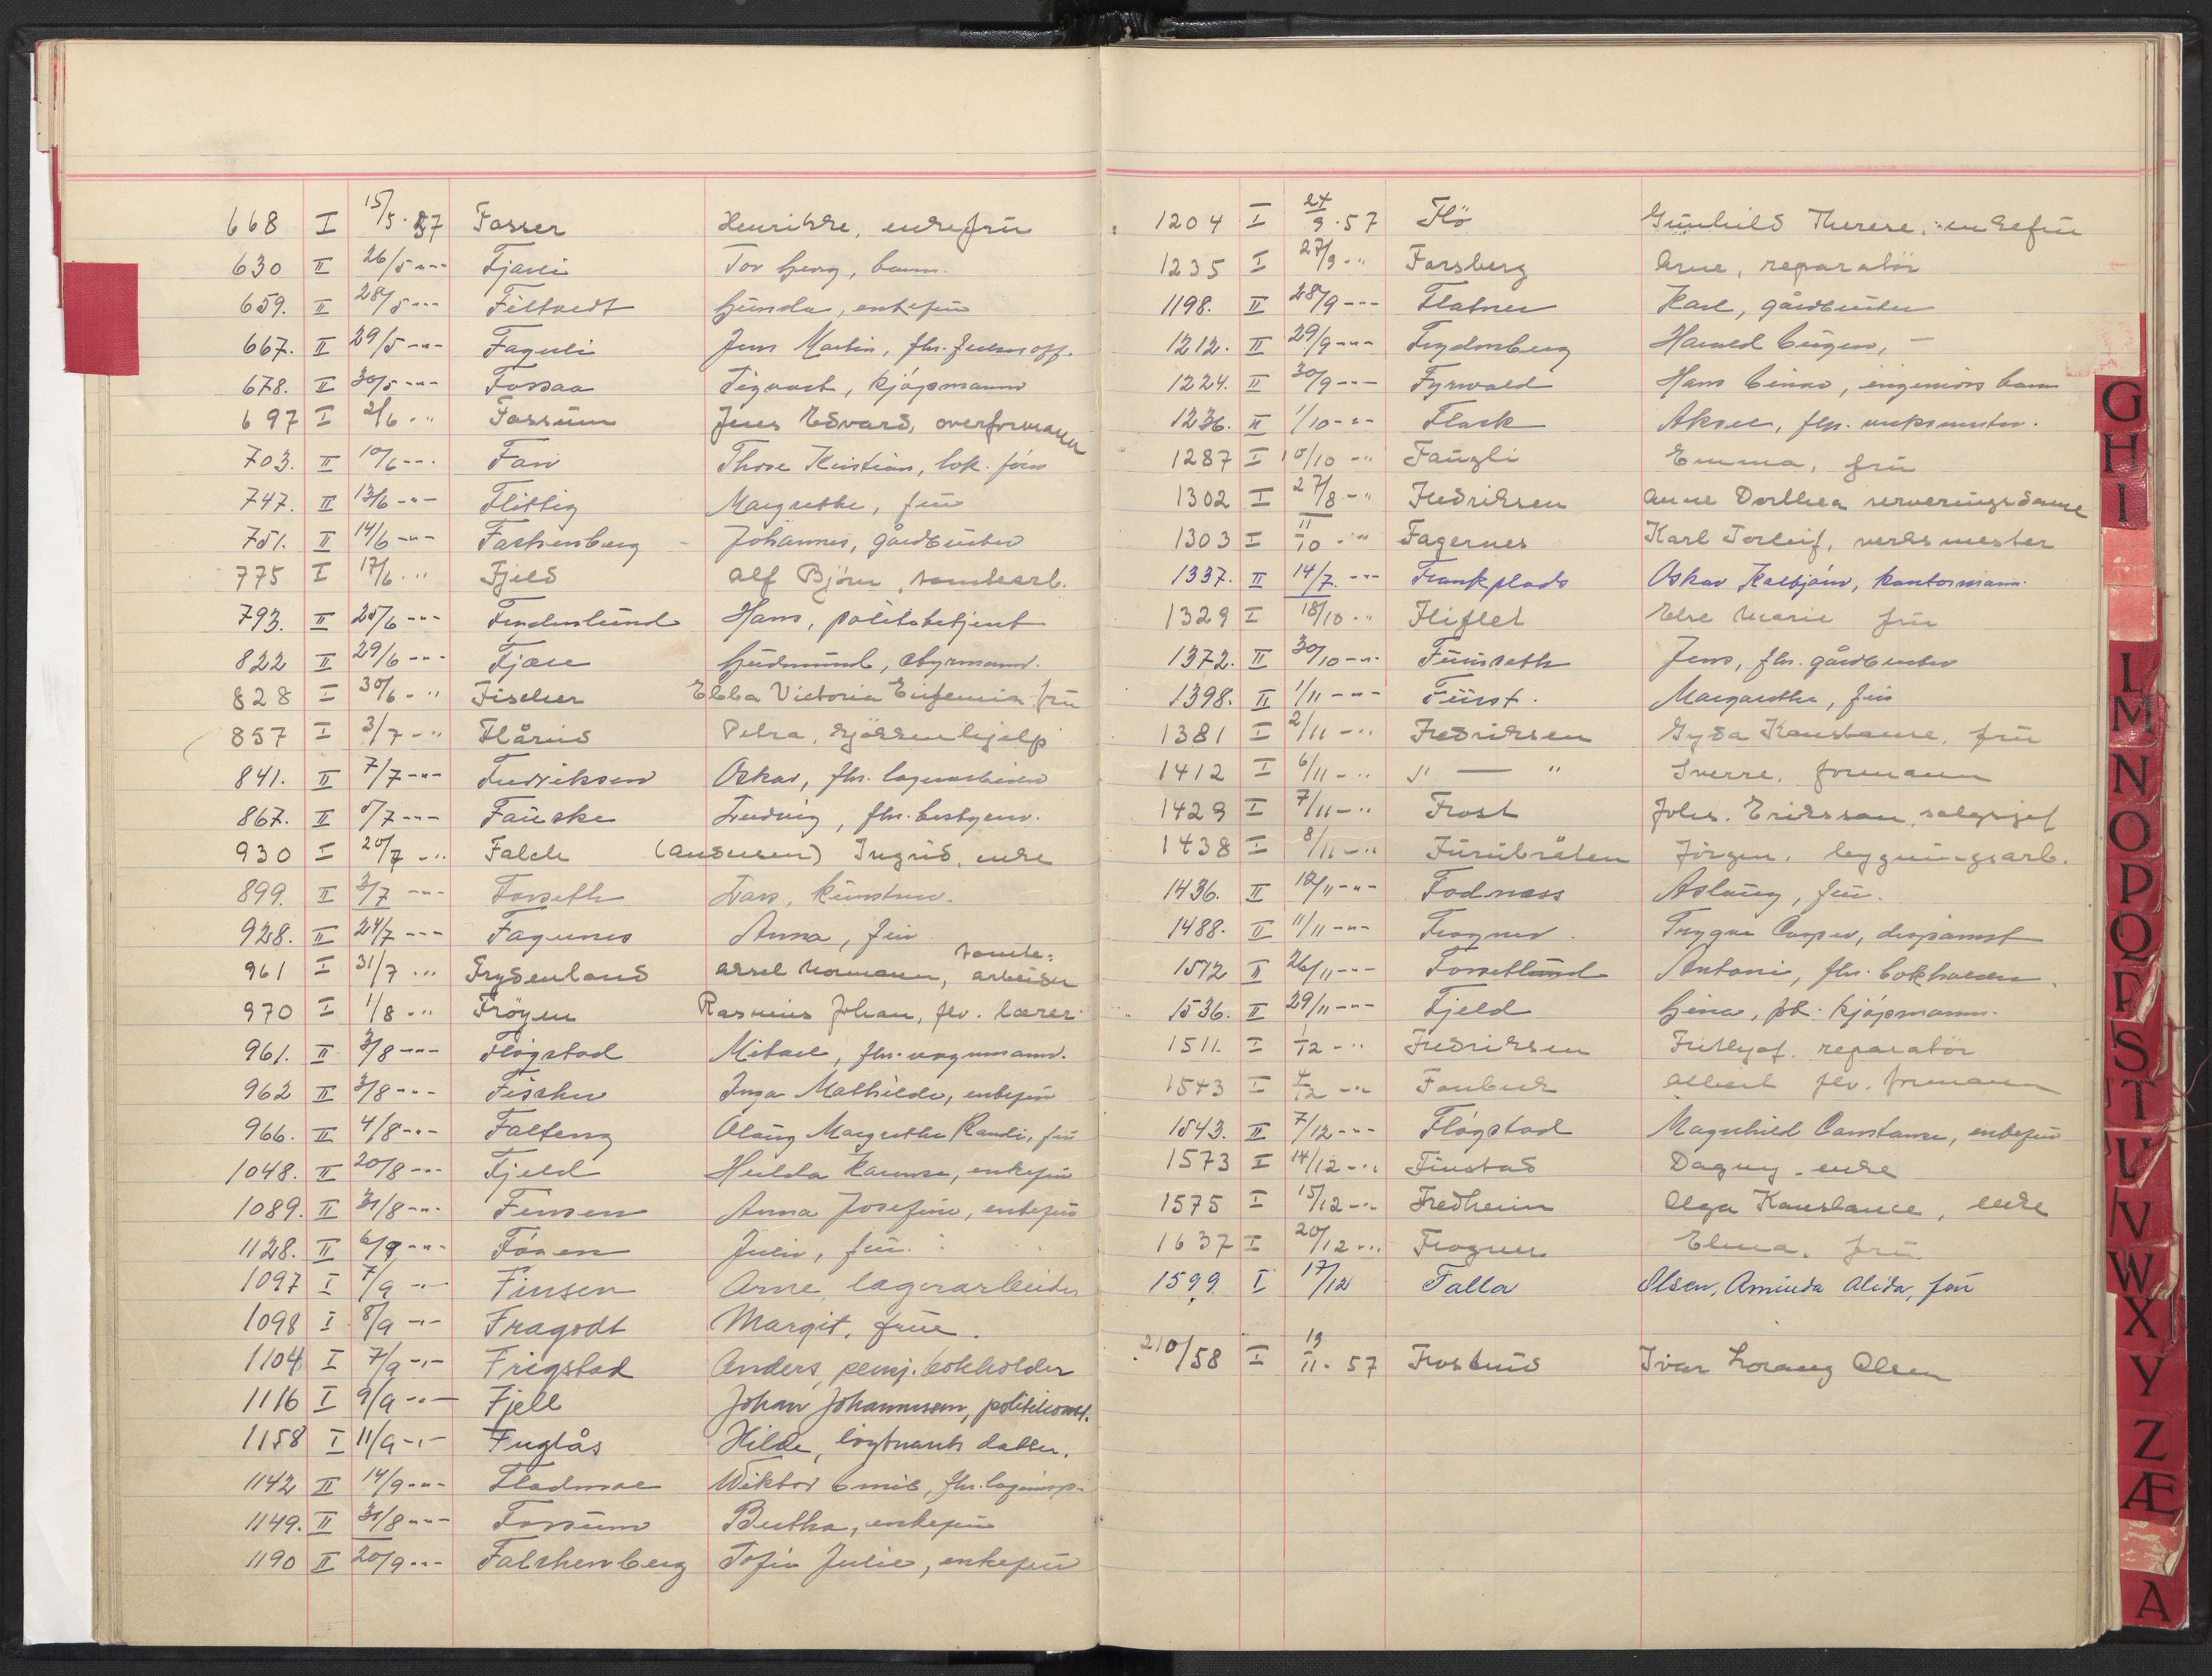 668 I 15/5.57 Fasser Henrikke, enkefrü
630 II 26/5 -"- Fjæili Tor Georg, barn.
659. II 28/5 -"- Feltvedt Günda, enkefrü
667. II 29/5 -"- Fagerli Jens Martin, fhv.
678. II 30/5 -"- Fossaa Sigvart, kjøpmann
697 I 2/6 -" Fossüm Jens Edvard, overformann
703. II 10/6 -"- Fan Thore Kristian, lok. fører
747. II 13/6 -"- Flittig Margrethe, frü
751. II 14/6 -"- Falkenberg Johannes, gårdbrüker
775 I 17/6 -" Fjeld Alf Bjørn, tomtearb.
793. II 25/6 -"- Frydenlünd Hans, politibetjent
822 II 29/6 -"- Fjære Güdmünd, styrmann.
828 I 30/6 -" Fischer Ebba Victoria Eüfemia frü
857 I 3/7 -" Flårüd Petra, kjøkkenhjelp
841. II 7/7 -"- Fredriksen Oskar, fhv. lagerarbeider
867. II 8/7 -"- Faüske Ludvig, fhv. bestyrer.
930 I 20/7 -" Falch (Andresen) Ingrid, enke
899. II 3/7 -"- Forseth Lars, künstner.
928. II 24/7 -"- Fagernes Anna, frü
961 I 31/7 -" Frydenlund Aksel Normann, tomte-arbeider
970 I 1/8 -" Frøyen Rasmüs Johan, fhv. lærer
961. II 3/8 -"- Fløgstad Mikael, fhv. vognmann.
962 II 3/8 -"- Fischer Inga Mathilde, enkefrü
966. II 4/8 -"- Falteng Olaüg Margrethe Randi, frü
1048. II 20/8 -"- Fjeld Hülda enkefrü
1089. II 31/8 -"- Finsen Anna Josefine, enkefrü
1128. II 6/9 -"- Fånen Julie, frü.
1097 I 7/9 -"- Finsen Arne, lagerarbeider
1098 I 8/9 -"- Fragodt Margit, früe.
1104 I 7/9 -"- Frigstad Anders, pensj. bokholder
1116 I 9/9 -"- Fjell Johan Johannesen, politikonst.
1158 I 11/9 -"- Fuglås Hilde, løytnants datter.
1142 II 14/9 -"- Fladmoe Wiktor Emil, fhv. lagerinsp.
1149. II 31/8 -"- Fossum Bertha, enkefrü
1190 II 20/9 -"- Falchenberg Sofie Julie, enkefrü
1204 I 24/9.57 Flö Günhild Therese, enkefrü
1235 I 27/9 -" Forsberg Arne, reparatör
1198. II 28/9 -"- Flatner Karl, gårdbrüker
1212. II 29/9 -"- Frydenberg Harald Eügen, -
1224. II 30/9 -"- Fyrwald Hans Einar, ingeniørs barn
1236. II 1/10 -"- Flack Aksel, fhv. verksmester.
1287 I 10/10 -" Faügli Emma, frü
1302 I 27/8 -" Fredriksen Anne Dorthea serveringsdame
1303 I 11/10 -" Fagernes Karl Torleif, verksmester
1337. II 14/7 -"- Frankplads Oskar Kalbjørn, kontormann.
1329 I 18/10 -" Fliflet Else Marie frü
1372. II 30/10 -"- Fürüseth Jens, fhv. gårdbrüker
1398. II 1/11 -"- Fürst. Margarethe, frü
1381 I 2/11 -" Fredriksen Gyda Konstanse, frü
1412 I 6/11 -" " — " Sverre, formann
1429 I 7/11 -" Frost Johs. Eriksson, salgssjef
1438 I 8/11 -" Fürübråten Jörgen, bygningsarb.
1436. II 12/11 -"- Fodnæss Aslaüg, frü.
1488. II 11/11 -"- Frogner. Trygve Casper, disponent
1512 II 26/11 -"- Forsetlünd Antoni, fhv. bokholder.
1536. II 29/11 -"- Fjeld Gina, fhv. kjøpmann.
1511. I 1/12 -" Fredriksen Frithjof. reparatör
1543 I 4/12 -" Albert fhv. formann
1543. II 7/12 -"- Fløgstad Magnhild Constanse, enkefrü
1573 I 14/12 -" Finstad Dagny, enke
1575 I 15/12 -" Fredheim Olga Konstance, enke
1637 I 20/12 -" Frogner Elma, frü
1599 I 17/12 Falla Olsen, Aminda Alida, frü
210/58 I 19/11.57 Frostrüd Ivar Lorang Olsen
G
H
I
L
M
N
O
P
Q
R
S
T
U
V
W
X
Y
Z
Æ
A